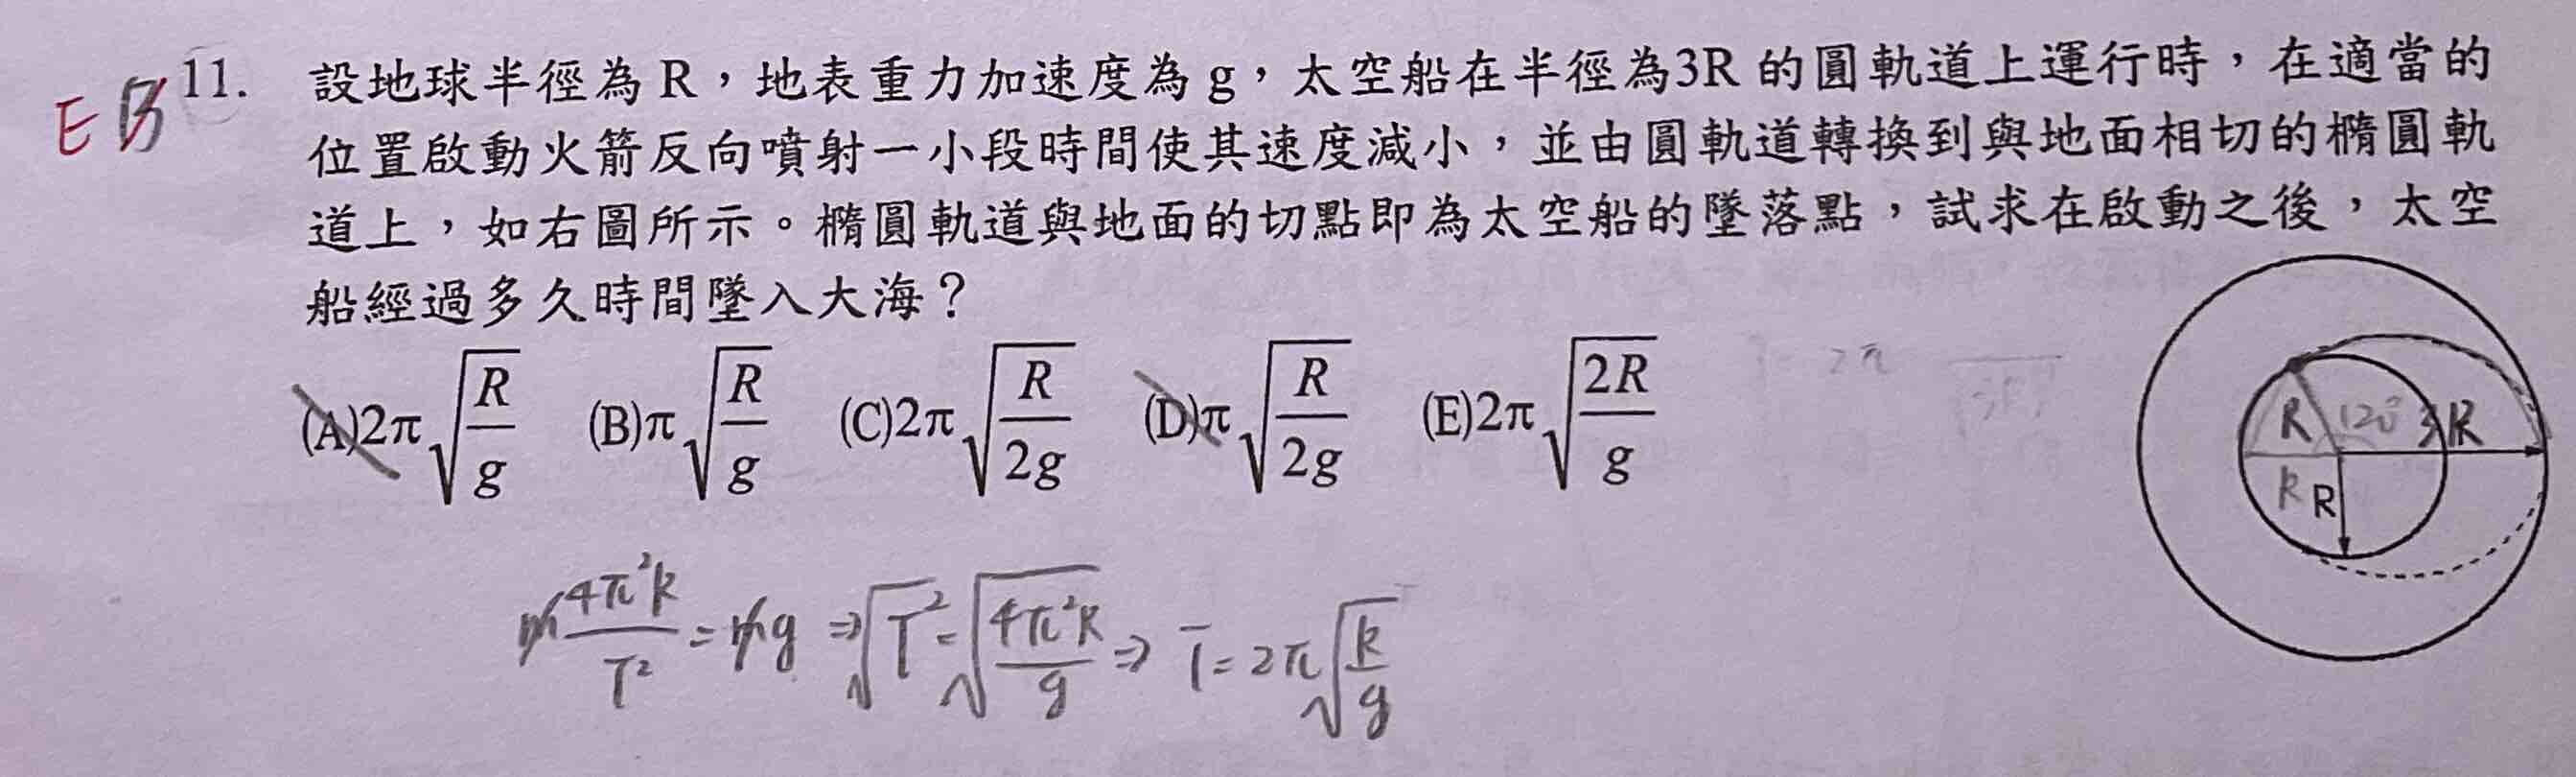 E B 11. 設地球半徑為 R,地表重力加速度為 g,太空船在半徑為3R 的圓軌道上運行時,在適當的
位置啟動火箭反向噴射一小段時間使其速度減小,並由圓軌道轉換到與地面相切的橢圓軌
道上,如右圖所示。橢圓軌道與地面的切點即為太空船的墜落點,試求在啟動之後,太空
船經過多久時間墜入大海?
(A)2π√(R/g) (B)π√(R/g) (C)2π√(R/2g) (D)π√(R/2g) (E)2π√(2R/g)
R 120° 3R
R R
m 4π²R/T² = mg ⇒ √T² = √(4π²R/g) ⇒ T = 2π√(R/g)